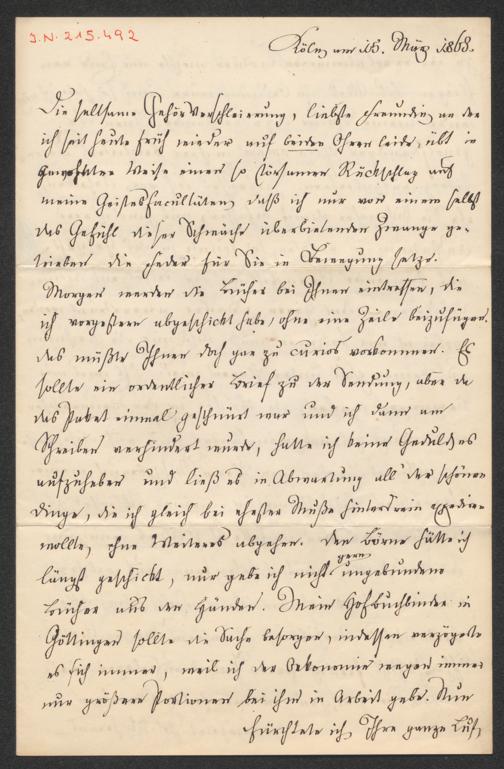 I.N. 215.492
Köln, am 15. März 1863.
Die seltsame Gehörverschleierung, liebste Freundin, an der
ich seit heute früh wieder auf beiden Ohren leide, übt in
gewohnter Weise einen so störsamen Rückschlag auf
meine Geistesfacultäten, daß ich nur von einem selbst
das Gefühl dieser Schwäche überbietenden Zwange ge-
trieben die Feder für Sie in Bewegung setze.
Morgen werden die Bücher bei Ihnen eintreffen, die
ich vorgestern abgeschickt habe, ohne eine Zeile beizufügen.
das müßte Ihnen doch gar zu curios vorkommen. Es
sollte ein ordentlicher Brief zu der Sendung, aber da
das Paket einmal geschnürt war und ich dann am
Schreiben verhindert wurde, hatte ich keine Geduld es
aufzuheben und ließ es in Abwartung all' der schönen
Dinge, die ich gleich bei ehester Muße hinterdrein expediren
wollte, ohne Weiteres abgehen. Den Börne hätte ich
längst geschickt, nur gebe ich nicht gern ungebundene
Bücher aus den Händen. Mein Hofbuchbinder in
Göttingen sollte die Sache besorgen, indessen verzögerte
es sich immer, weil ich der Oekonomie wegen immer
nur größere Portionen bei ihm in Arbeit gebe. Nun
fürchtete ich, Ihre ganze Lust,